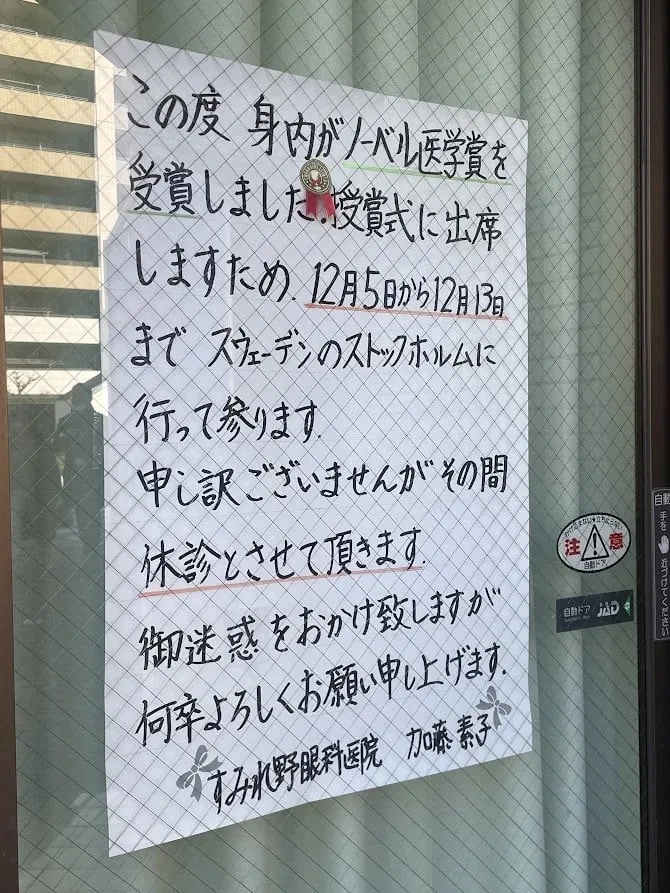 この度 身内がノーベル医学賞を
受賞しました.授賞式に出席
しますため.12月5日から12月13日
まで スウェーデンのストックホルムに
行って参ります.
申し訳ございませんがその間
休診とさせて頂きます.
御迷惑をおかけ致しますが
何卒よろしくお願い申し上げます.
すみれ野眼科医院 加藤 素子
注 意
自動ドア
自動ドア JAD
自動
手を
近づけてください